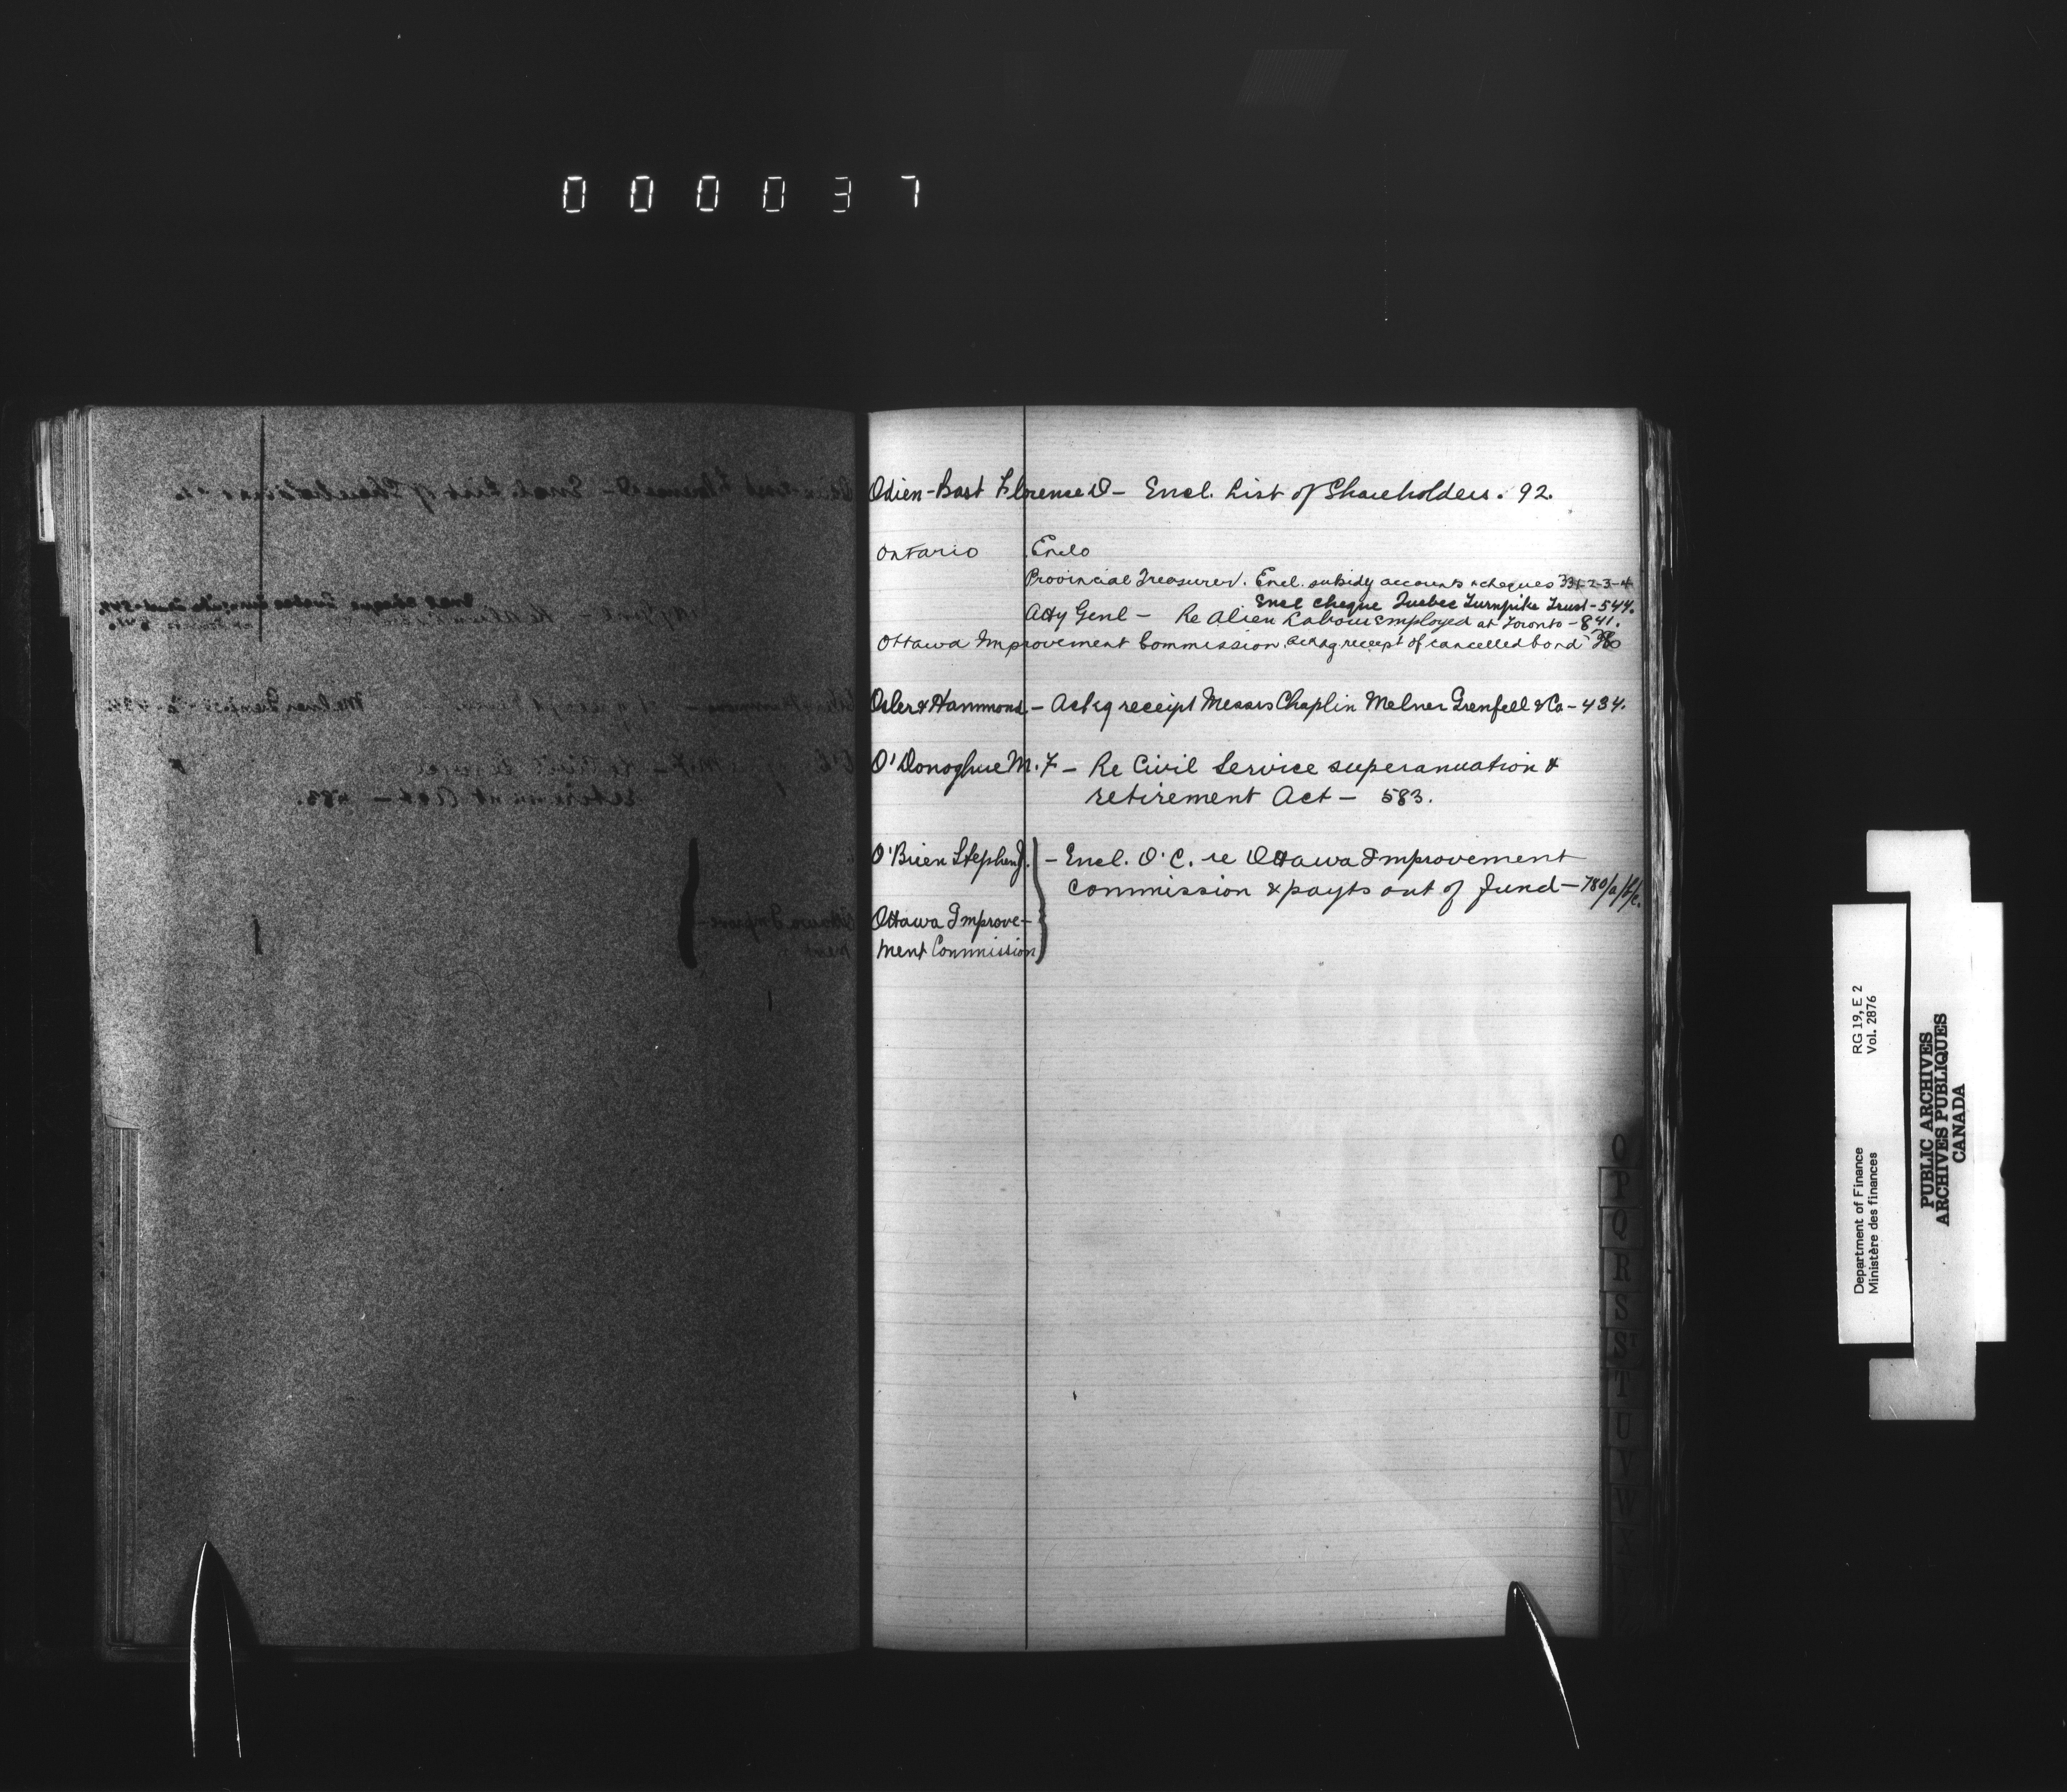 000037
Odien-Bast Florence D - Encl. List of Shareholders. 92.
Ontario Enclo
Provincial Treasurer. Encl. subsidy accounts & cheques 331-2-3-4
Encl cheque Quebec Turnpike Trust - 544.
Atty Genl - Re Alien Labour employed at Toronto - 841.
Ottawa Improvement Commission. Ackng receipt of cancelled bond
Osler & Hammond - Ackg receipt Messrs Chaplin Melner Grenfell & Co - 434.
O'Donoghue M. F - Re Civil Service superanuation &
retirement Act - 583.
O'Brien Stephen J. - Encl. O. C. re Ottawa Improvement
Commission & payts out of fund - 780/a/b/c.
Ottawa Improve-
ment Commission
O
P
Q
R
S
ST
T
U
V
W
Department of Finance
Ministère des finances
RG 19, E 2
Vol. 2876
PUBLIC ARCHIVES
ARCHIVES PUBLIQUES
CANADA